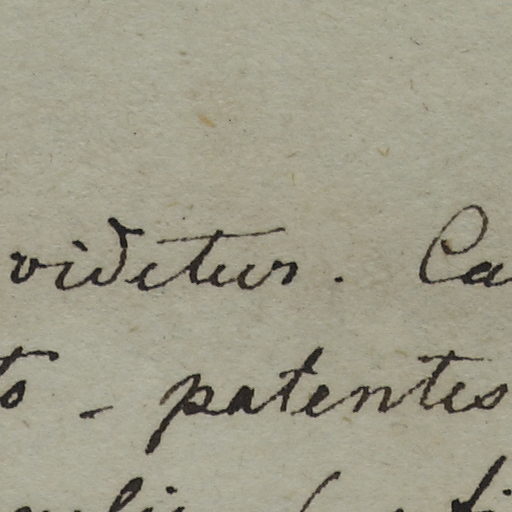 videtur. Ca
to - patentes